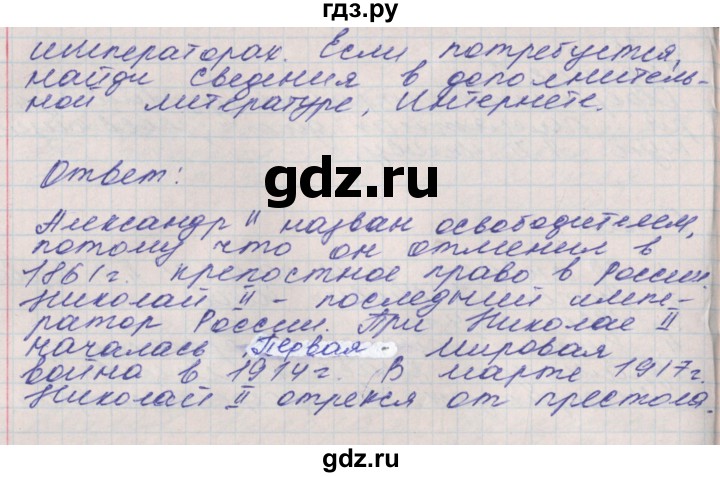 гдз.ру
императорах. Если потребуется,
найди сведения в дополнитель-
ной литературе, Интернете.
Ответ:
gdz.ru
Александр II назван освободителем,
потому что он отменил в
1861г. крепостное право в России.
Николай II - последний импе-
ратор России. При Николае II
началась Первая - мировая
война в 1914г. В марте 1917г.
Николай II отрекся от престола.
gdz.ru